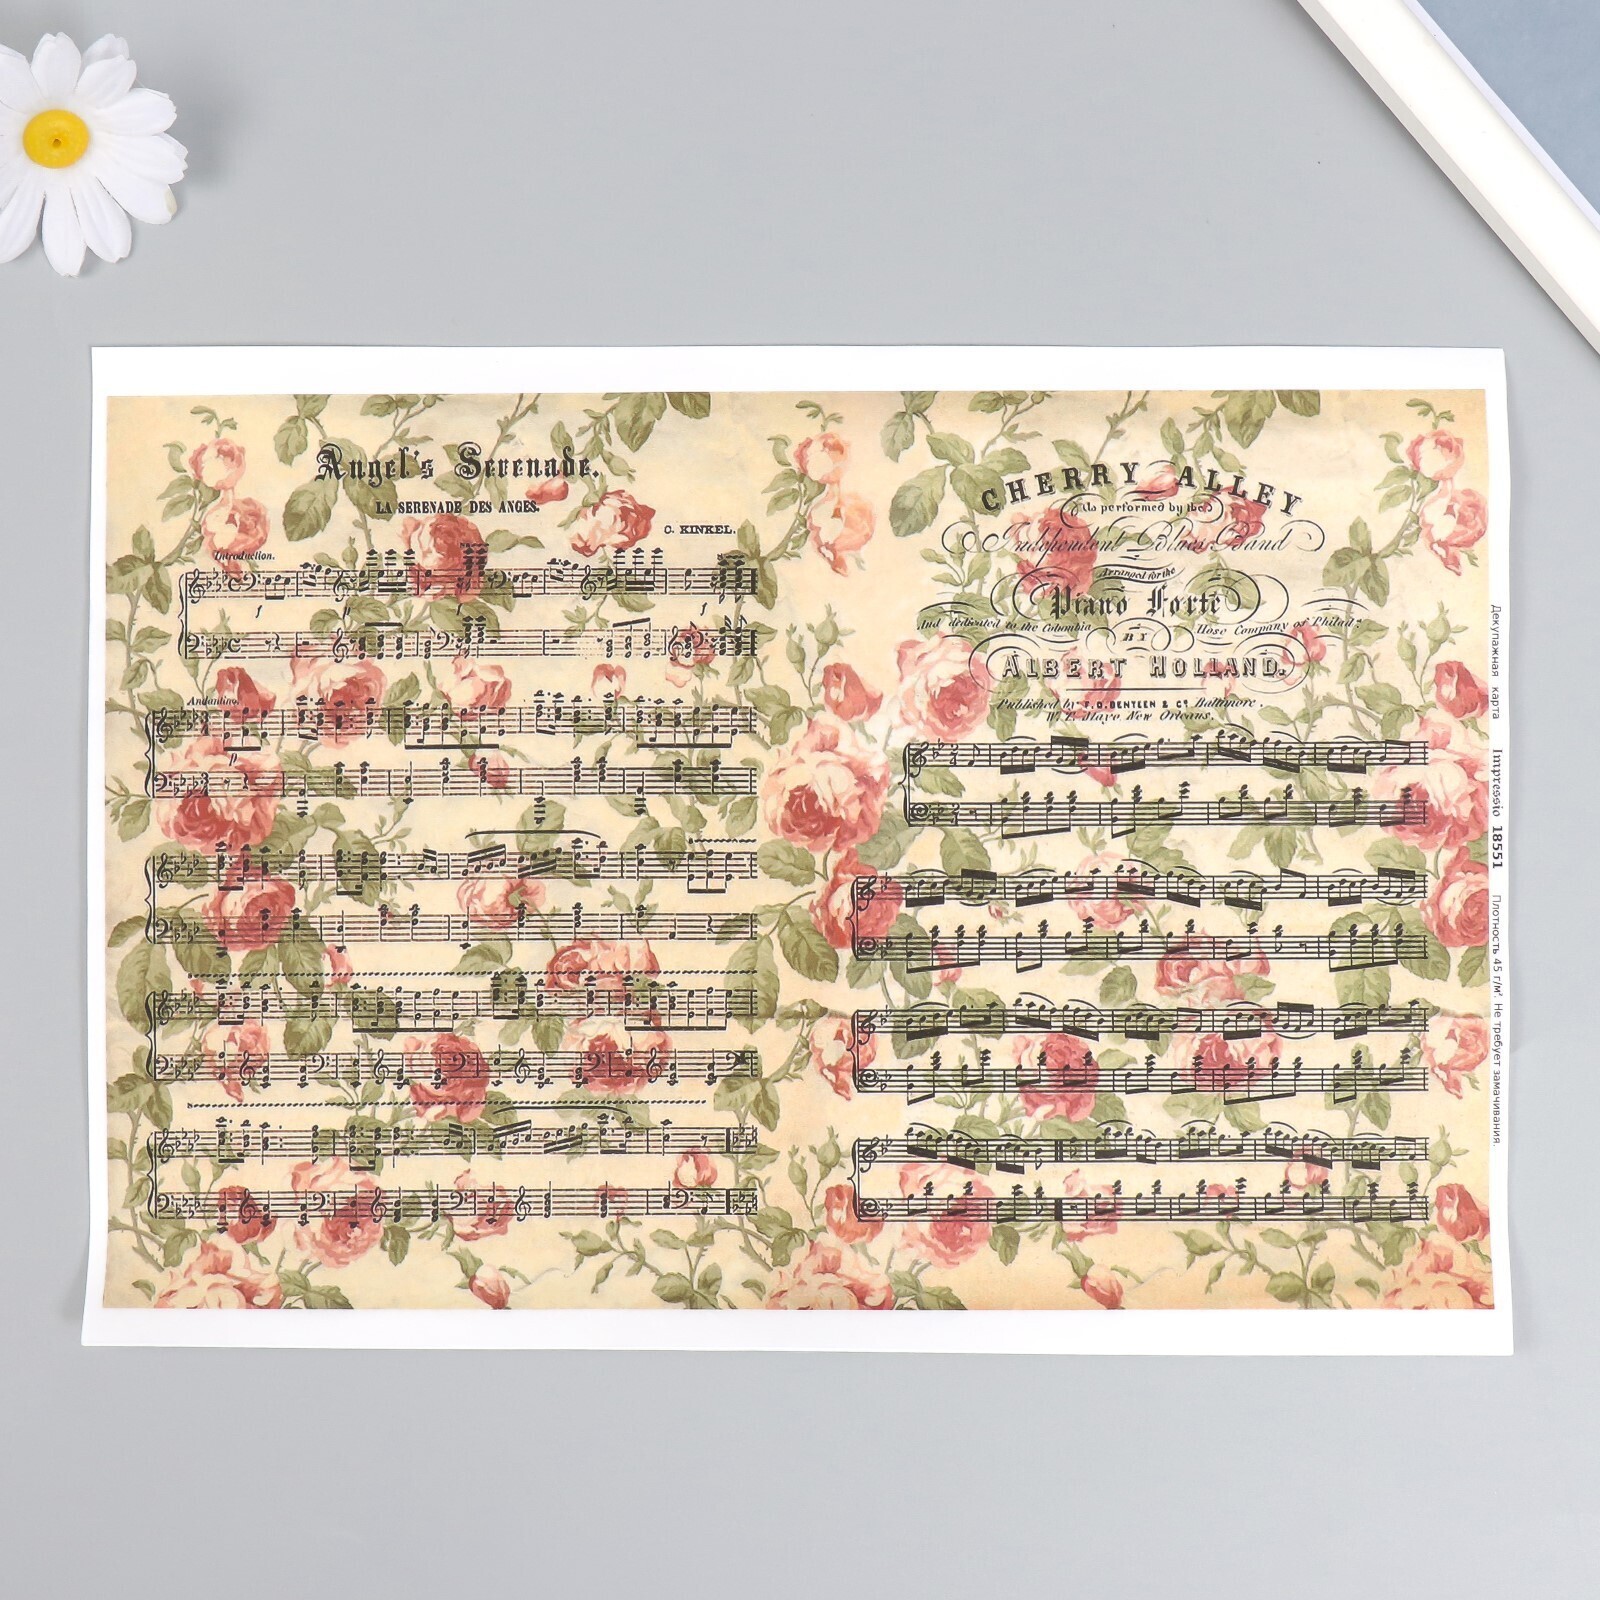 Angel's Serenade.
LA SERENADE DES ANGES.
C. KINKEL.
Introduction.
f p f f
Andantino.
p
CHERRY ALLEY
As performed by the
Independent Blues Band
Arranged for the
Piano Forte
And dedicated to the Columbia Hose Company of Philad:
BY
ALBERT HOLLAND.
Published by F. D. BENTEEN & Co Baltimore.
W. T. Mayo New Orleans.
Декупажная карта Impressio 18551 Плотность 45 г/м². Не требует замачивания.